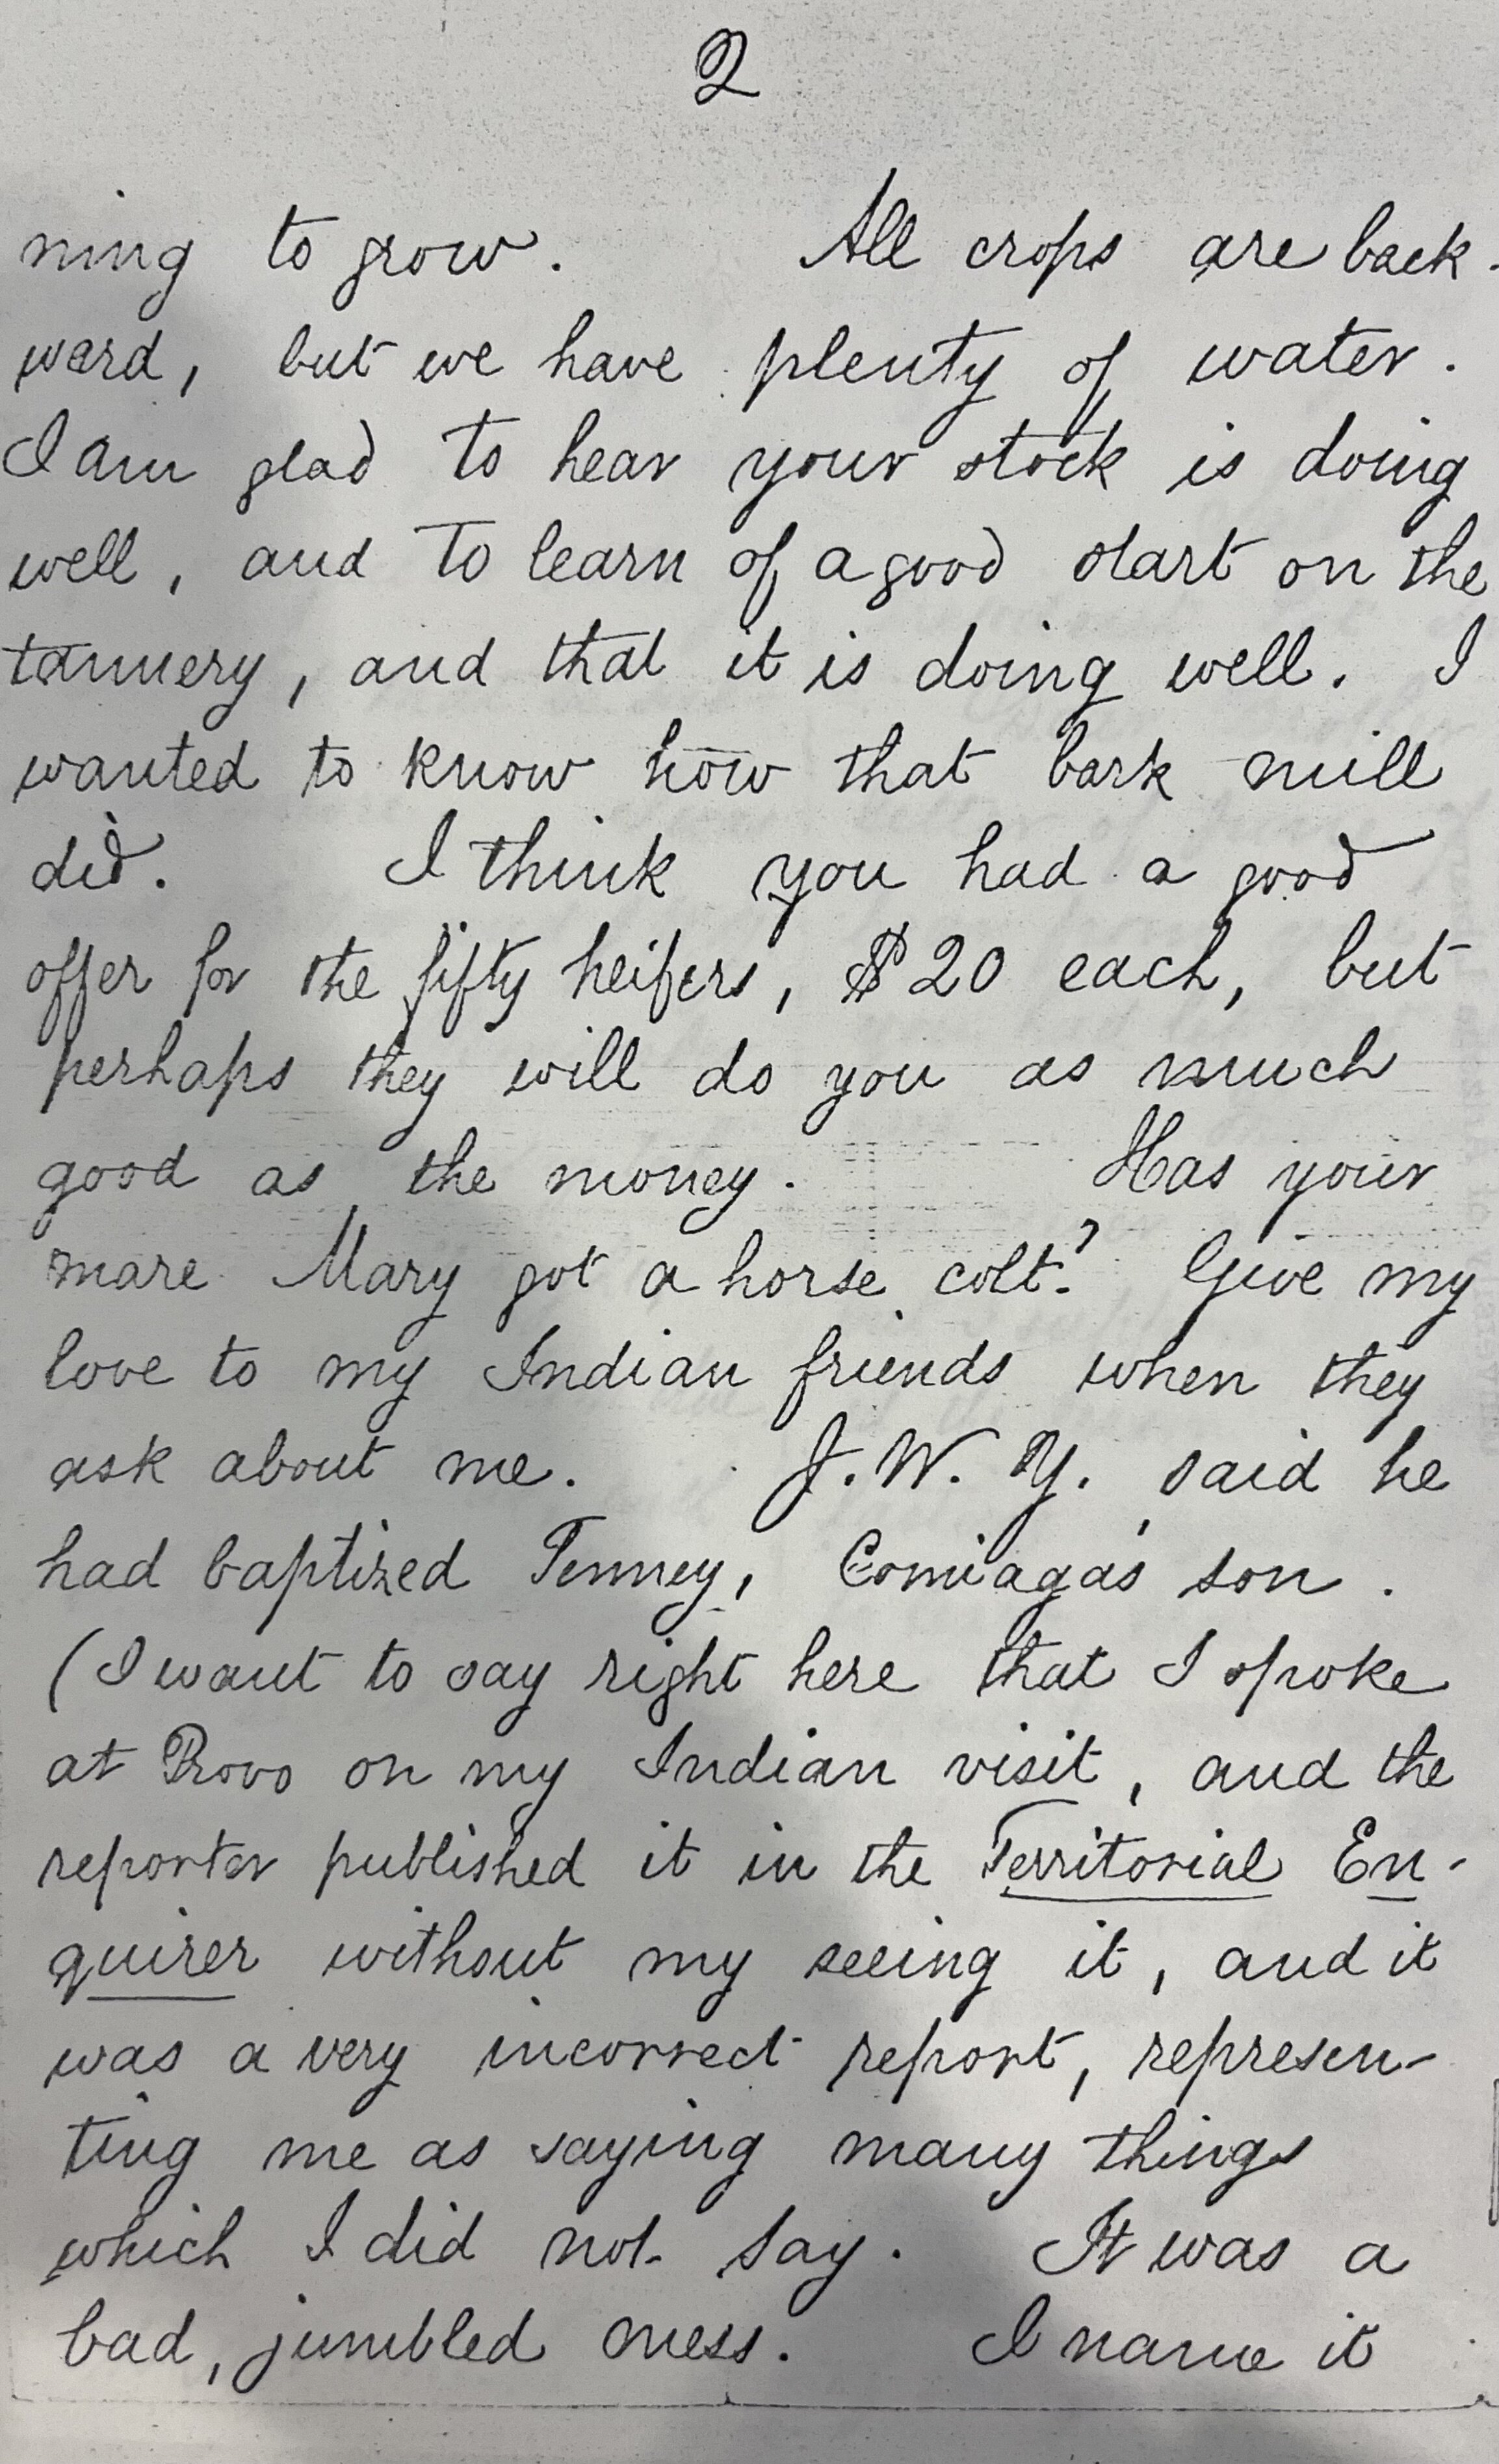 2
ning to grow. All crops are back-
ward, but we have plenty of water.
I am glad to hear your stock is doing
well, and to learn of a good start on the
tannery, and that it is doing well. I
wanted to know how that bark mill
did. I think you had a good
offer for the fifty heifers, $20 each, but
perhaps they will do you as much
good as the money. Has your
mare Mary got a horse colt? Give my
love to my Indian friends when they
ask about me. J. W. Y. said he
had baptized Tenney, Comiaga's son.
(I want to say right here that I spoke
at Provo on my Indian visit, and the
reporter published it in the Territorial En-
quirer without my seeing it, and it
was a very incorrect report, represen-
ting me as saying many things
which I did not say. It was a
bad, jumbled mess. I name it